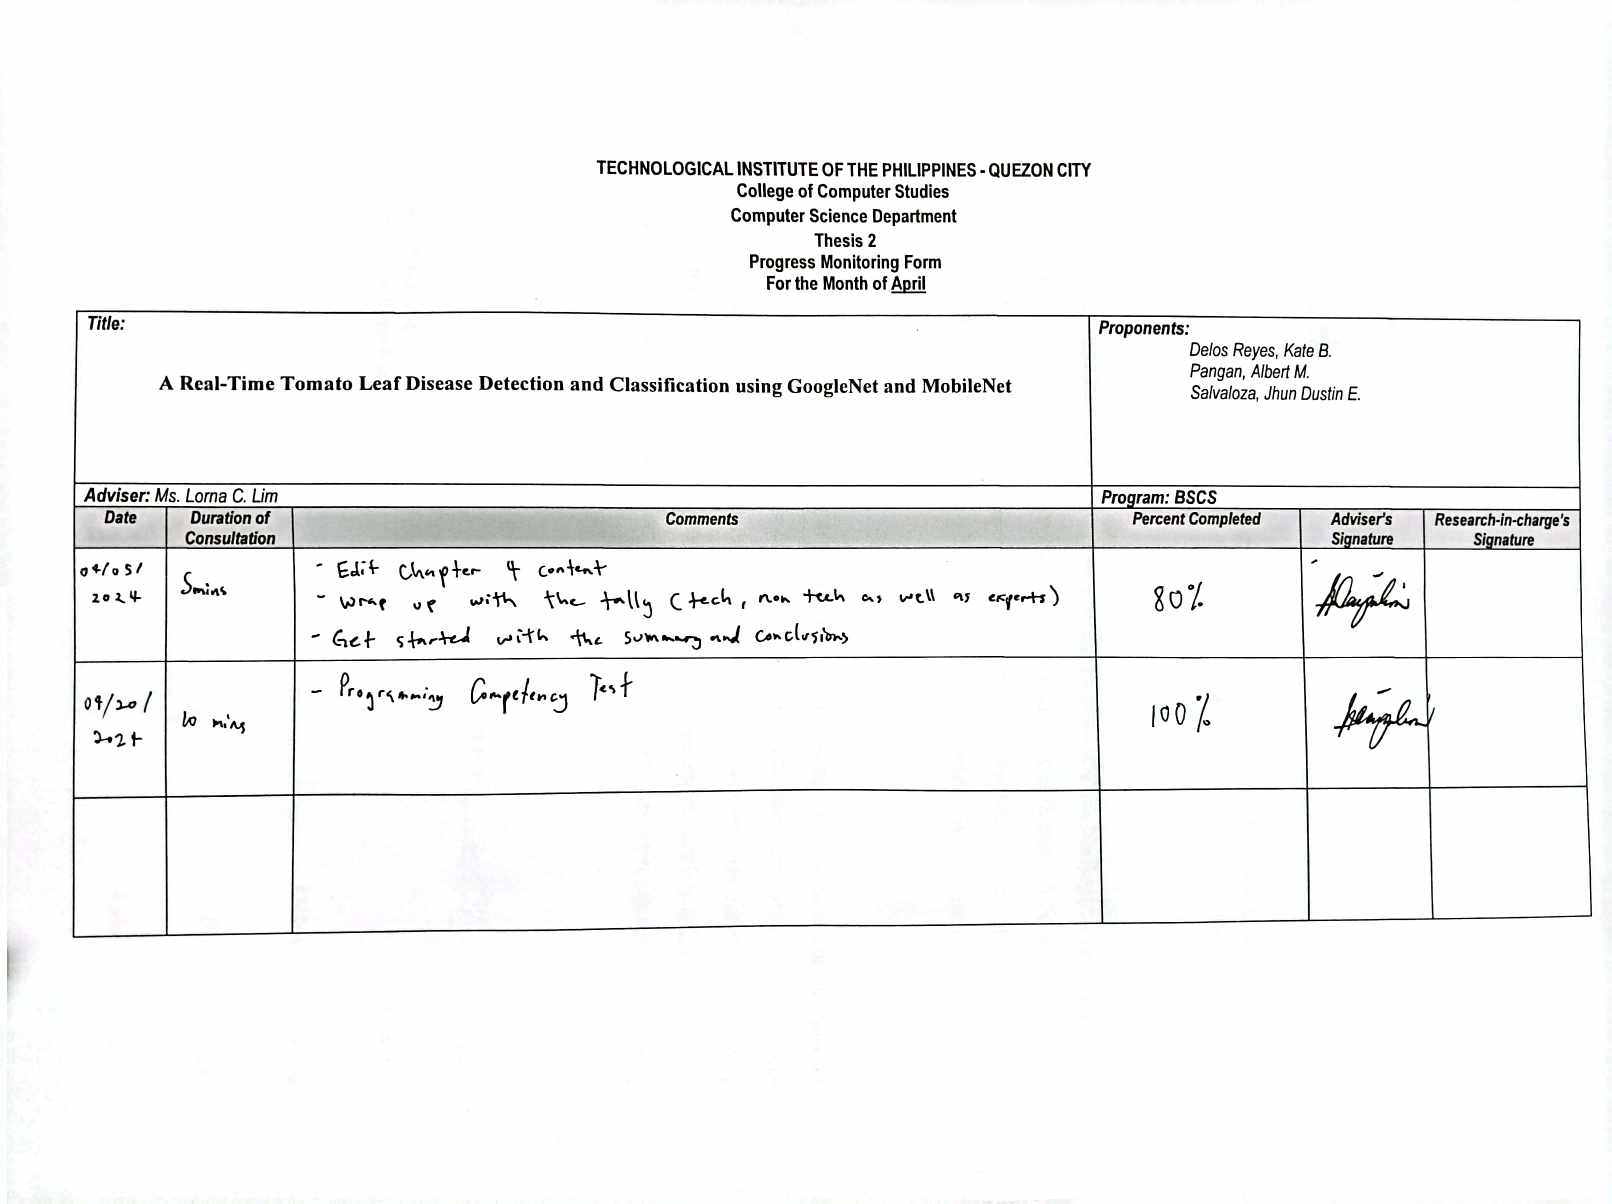 TECHNOLOGICAL INSTITUTE OF THE PHILIPPINES - QUEZON CITY
College of Computer Studies
Computer Science Department
Thesis 2
Progress Monitoring Form
For the Month of April
Title:
A Real-Time Tomato Leaf Disease Detection and Classification using GoogleNet and MobileNet
Proponents:
Delos Reyes, Kate B.
Pangan, Albert M.
Salvaloza, Jhun Dustin E.
Adviser: Ms. Lorna C. Lim
Program: BSCS
Date
Duration of
Consultation
Comments
Percent Completed
Adviser's
Signature
Research-in-charge's
Signature
04/05/
2024
5mins
- Edit Chapter 4 content
- Wrap up with the tally (tech, non tech as well as experts)
- Get started with the summary and conclusions
80%
04/20/
2024
10 mins
- Programming Competency Test
100%